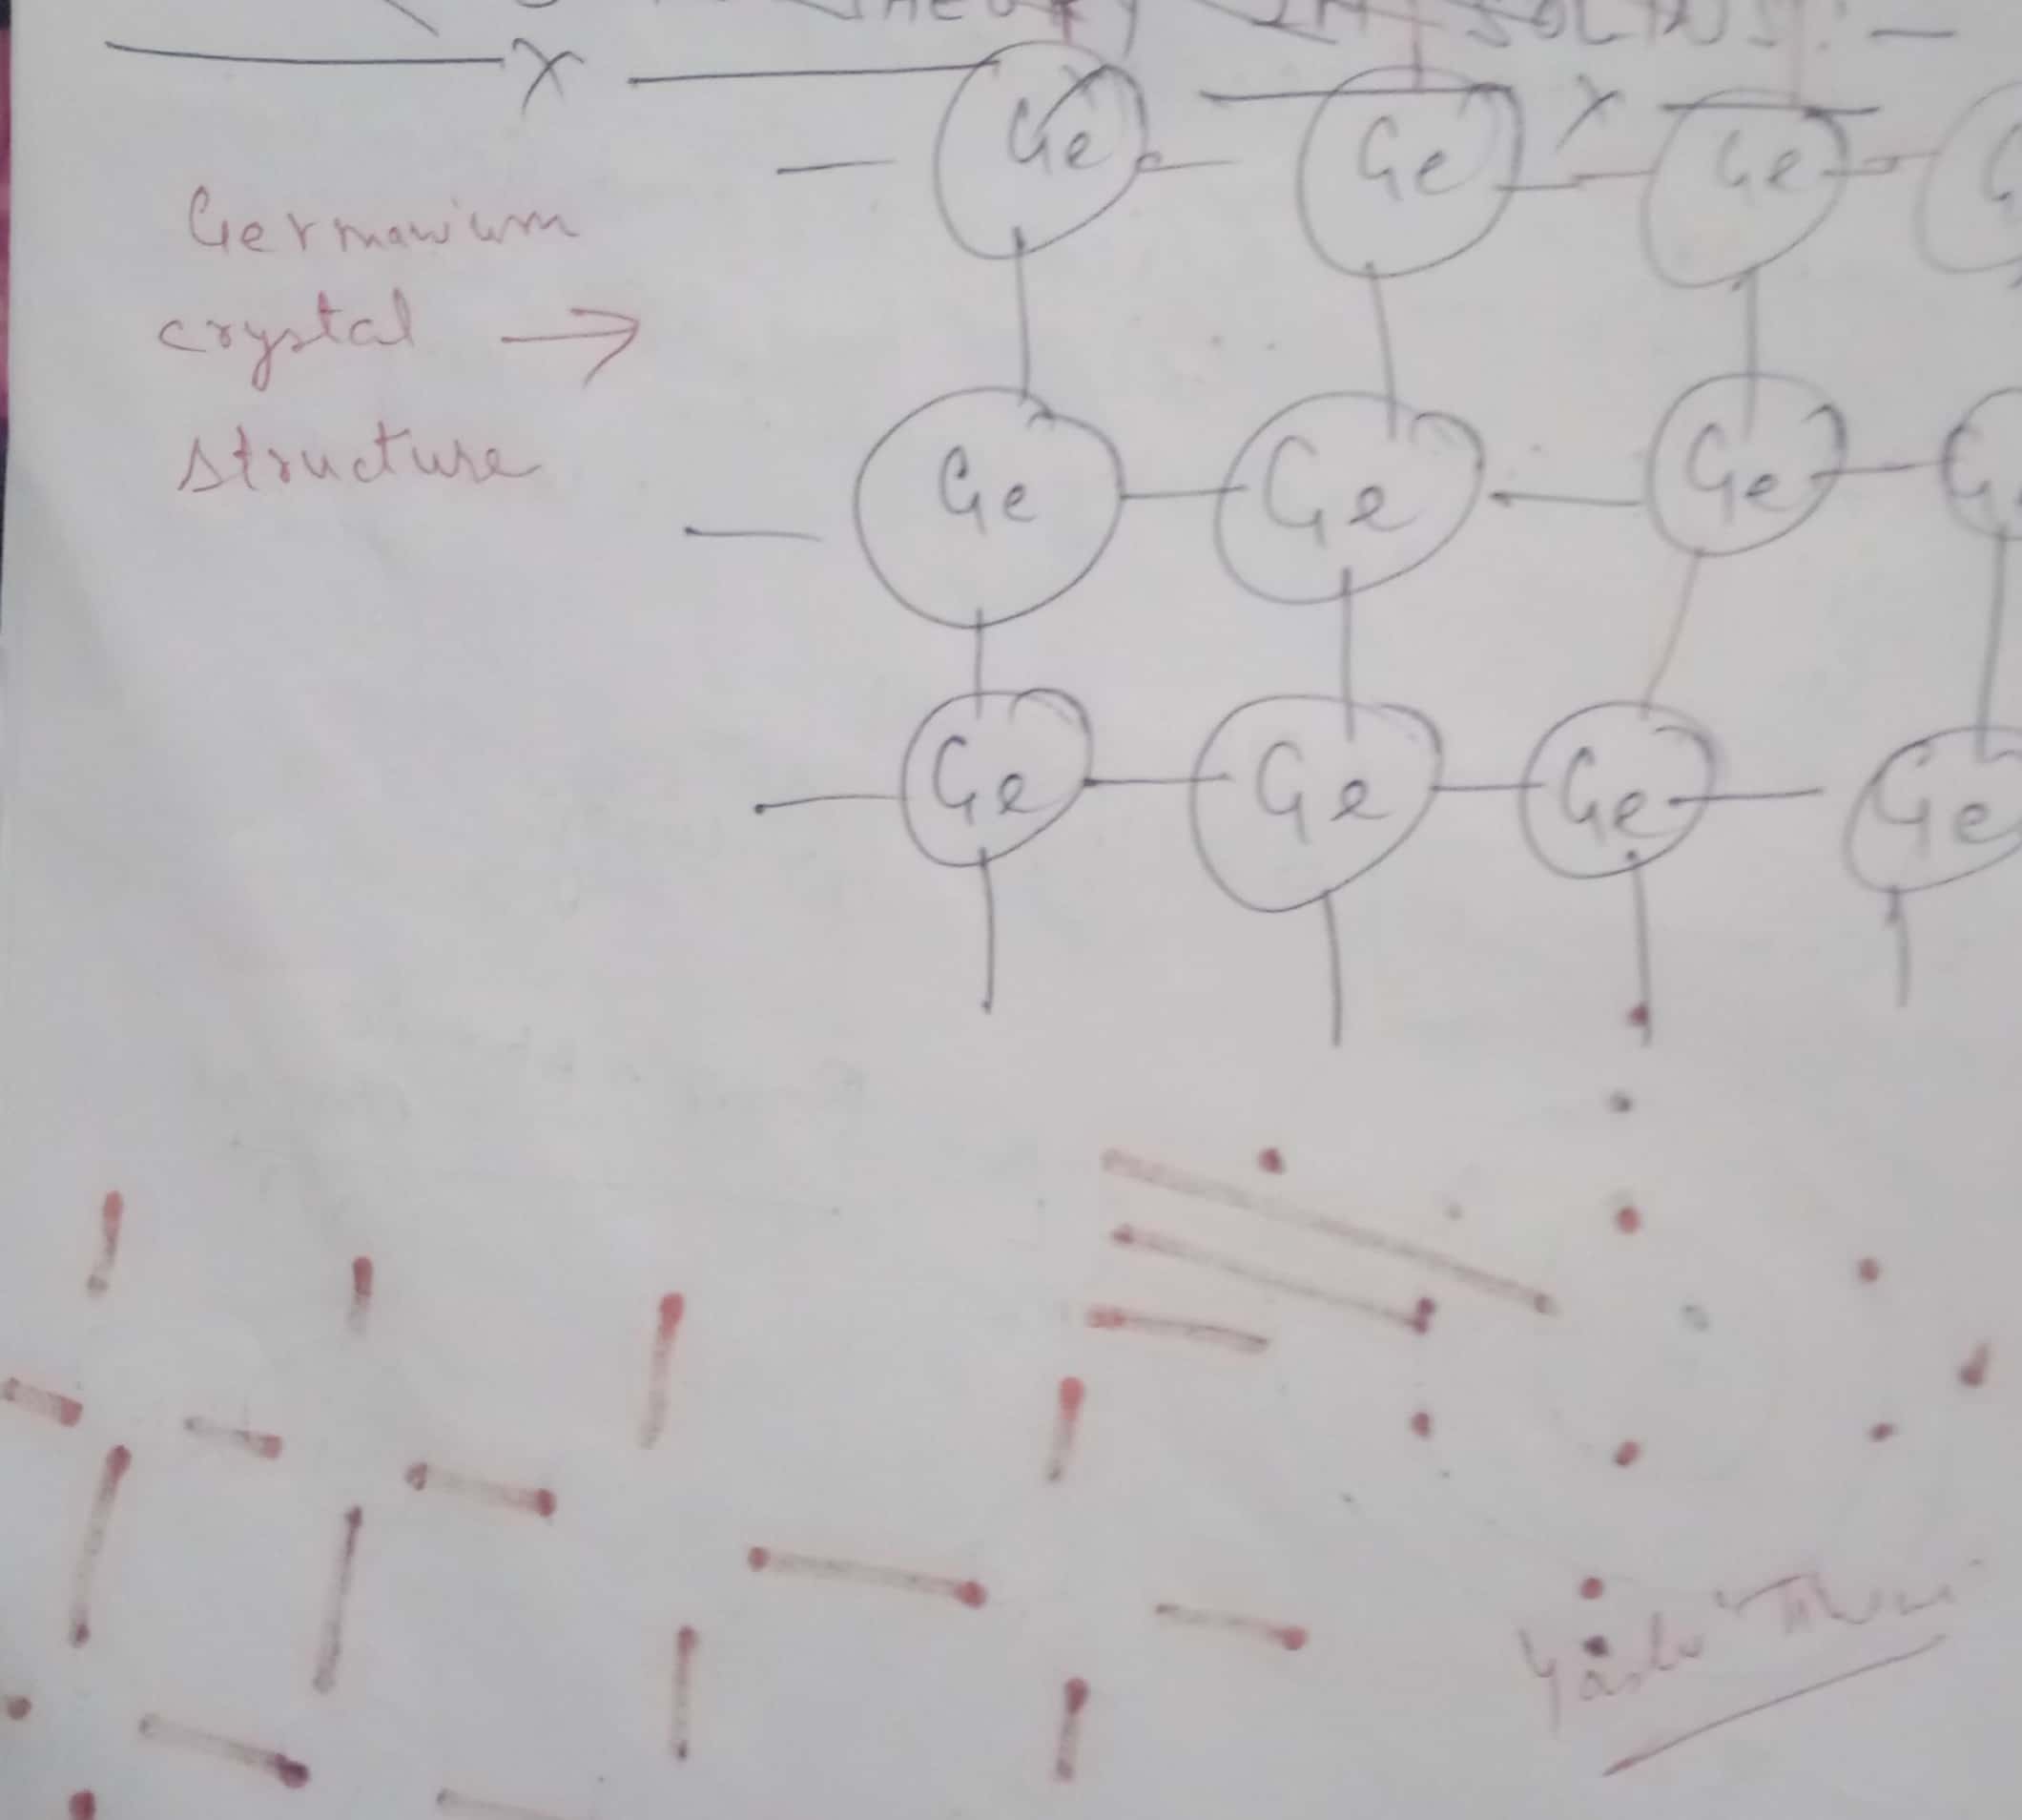 THEORY IN SOLIDS :-
X X
Ge Ge Ge
Germanium
crystal →
structure
Ge Ge Ge G
Ge Ge Ge Ge